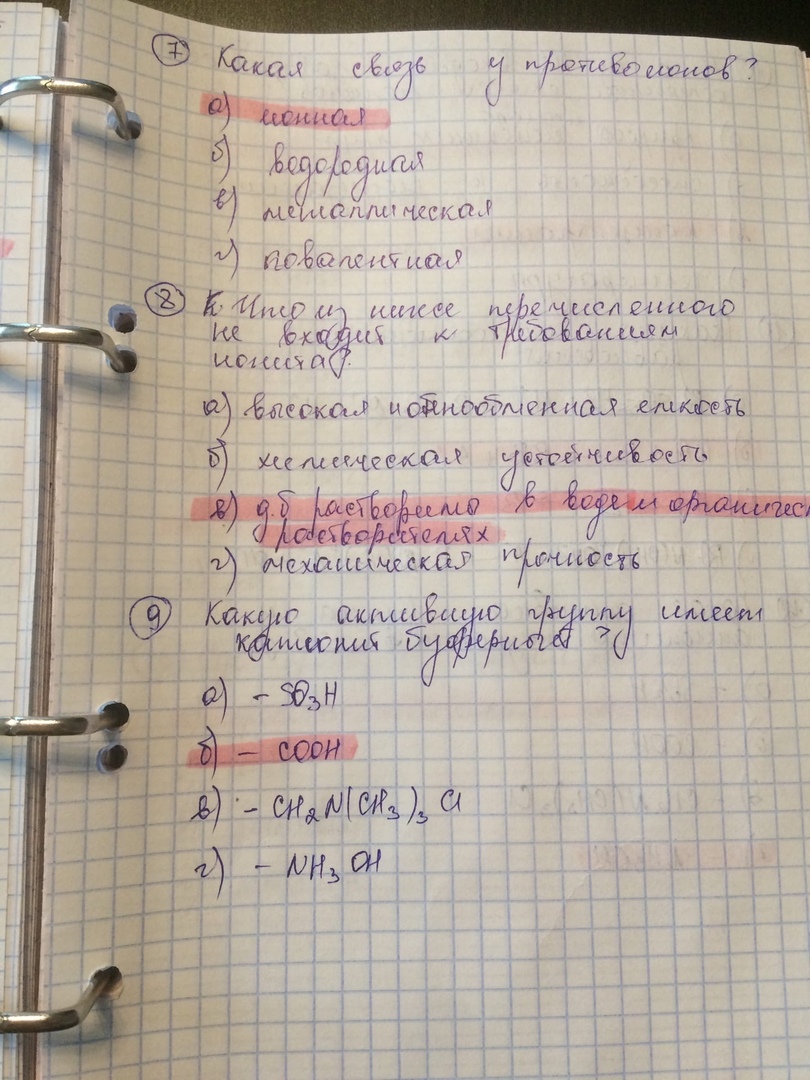 7 Какая связь у противоионов?
а) ионная
б) водородная
в) металлическая
г) ковалентная
8 Что из ниже перечисленного
не входит к требованиям
ионита?
а) высокая ионообменная емкость
б) химическая устойчивость
в) д.б растворимы в воде и органичес
растворителях
г) механическая прочность
9 Какую активную группу имеет
катионит буферный?
а) - SO3H
б) - COOH
в) - CH2N(CH3)3 Cl
г) - NH3 OH